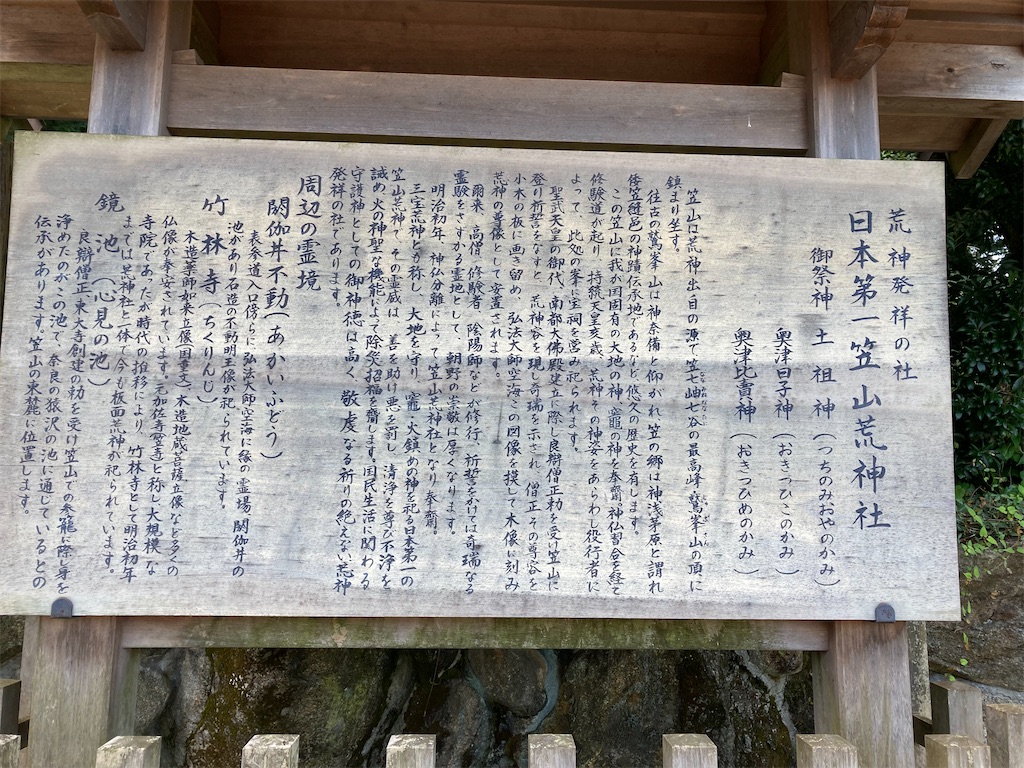 荒神発祥の社
日本第一笠山荒神社
御祭神 土祖神(つちのみおやのかみ)
奥津日子神(おきつひこのかみ)
奥津比賣神(おきつひめのかみ)
笠山は荒神出自の源で笠七岫七谷の最高峰鷲峯山の頂に
鎮まり坐す。
往古の鷲峯山は神奈備と仰がれ笠の郷は神浅茅原と謂れ
倭笠縫邑の神蹟伝承地であるなど悠久の歴史を有します。
この笠山に我が国固有の大地の神、竈の神を奉齋、神仏習合を経て
修験道が起り、持統天皇亥歳、荒神その神姿をあらわし役行者に
よって、此処の峯に宝祠を営み祀られます。
聖武天皇の御代、南都大佛殿建立に際し良辯僧正勅を受け笠山に
登り祈誓をなすと、荒神容を現し奇瑞を示され、僧正その尊容を
小木の板に画き留め、弘法大師空海この図像を摸して木像に刻み
荒神の尊像として安置されます。
爾来、高僧、修験者、陰陽師などが修行、祈誓をかけては奇瑞なる
霊験をさずかる霊地として、朝野の崇敬は厚くなります。
明治初年、神仏分離によって笠山荒神社となり奉齋。
三宝荒神とも称し、大地を守り、竈、火鎮めの神を祀る日本第一の
笠山荒神で、その霊威は、善を助け悪を罰し、清浄を尊び不浄を
誡め、火の神聖な機能によって除災招福を齎します。国民生活に関わる
守護神としての御神徳は高く、敬虔なる祈りの絶えない荒神
発祥の社であります。
周辺の霊境
閼伽井不動(あかいふどう)
表参道入口傍らに弘法大師空海に縁の霊場、閼伽井の
池があり石造の不動明王像が祀られています。
竹林寺(ちくりんじ)
木造薬師如来立像(国重文)木造地蔵菩薩立像など多くの
仏像が奉安されています。元加佐寺(笠寺)と称し大規模な
寺院であったが時代の推移により、竹林寺として明治初年
までは荒神社と一体で今も板面荒神が祀られています。
鏡池(心見の池)
良辯僧正、東大寺創建の勅を受け笠山での参籠に際し身を
浄めたのがこの池で、奈良の猿沢の池に通じているとの
伝承があります。笠山の東麓に位置します。